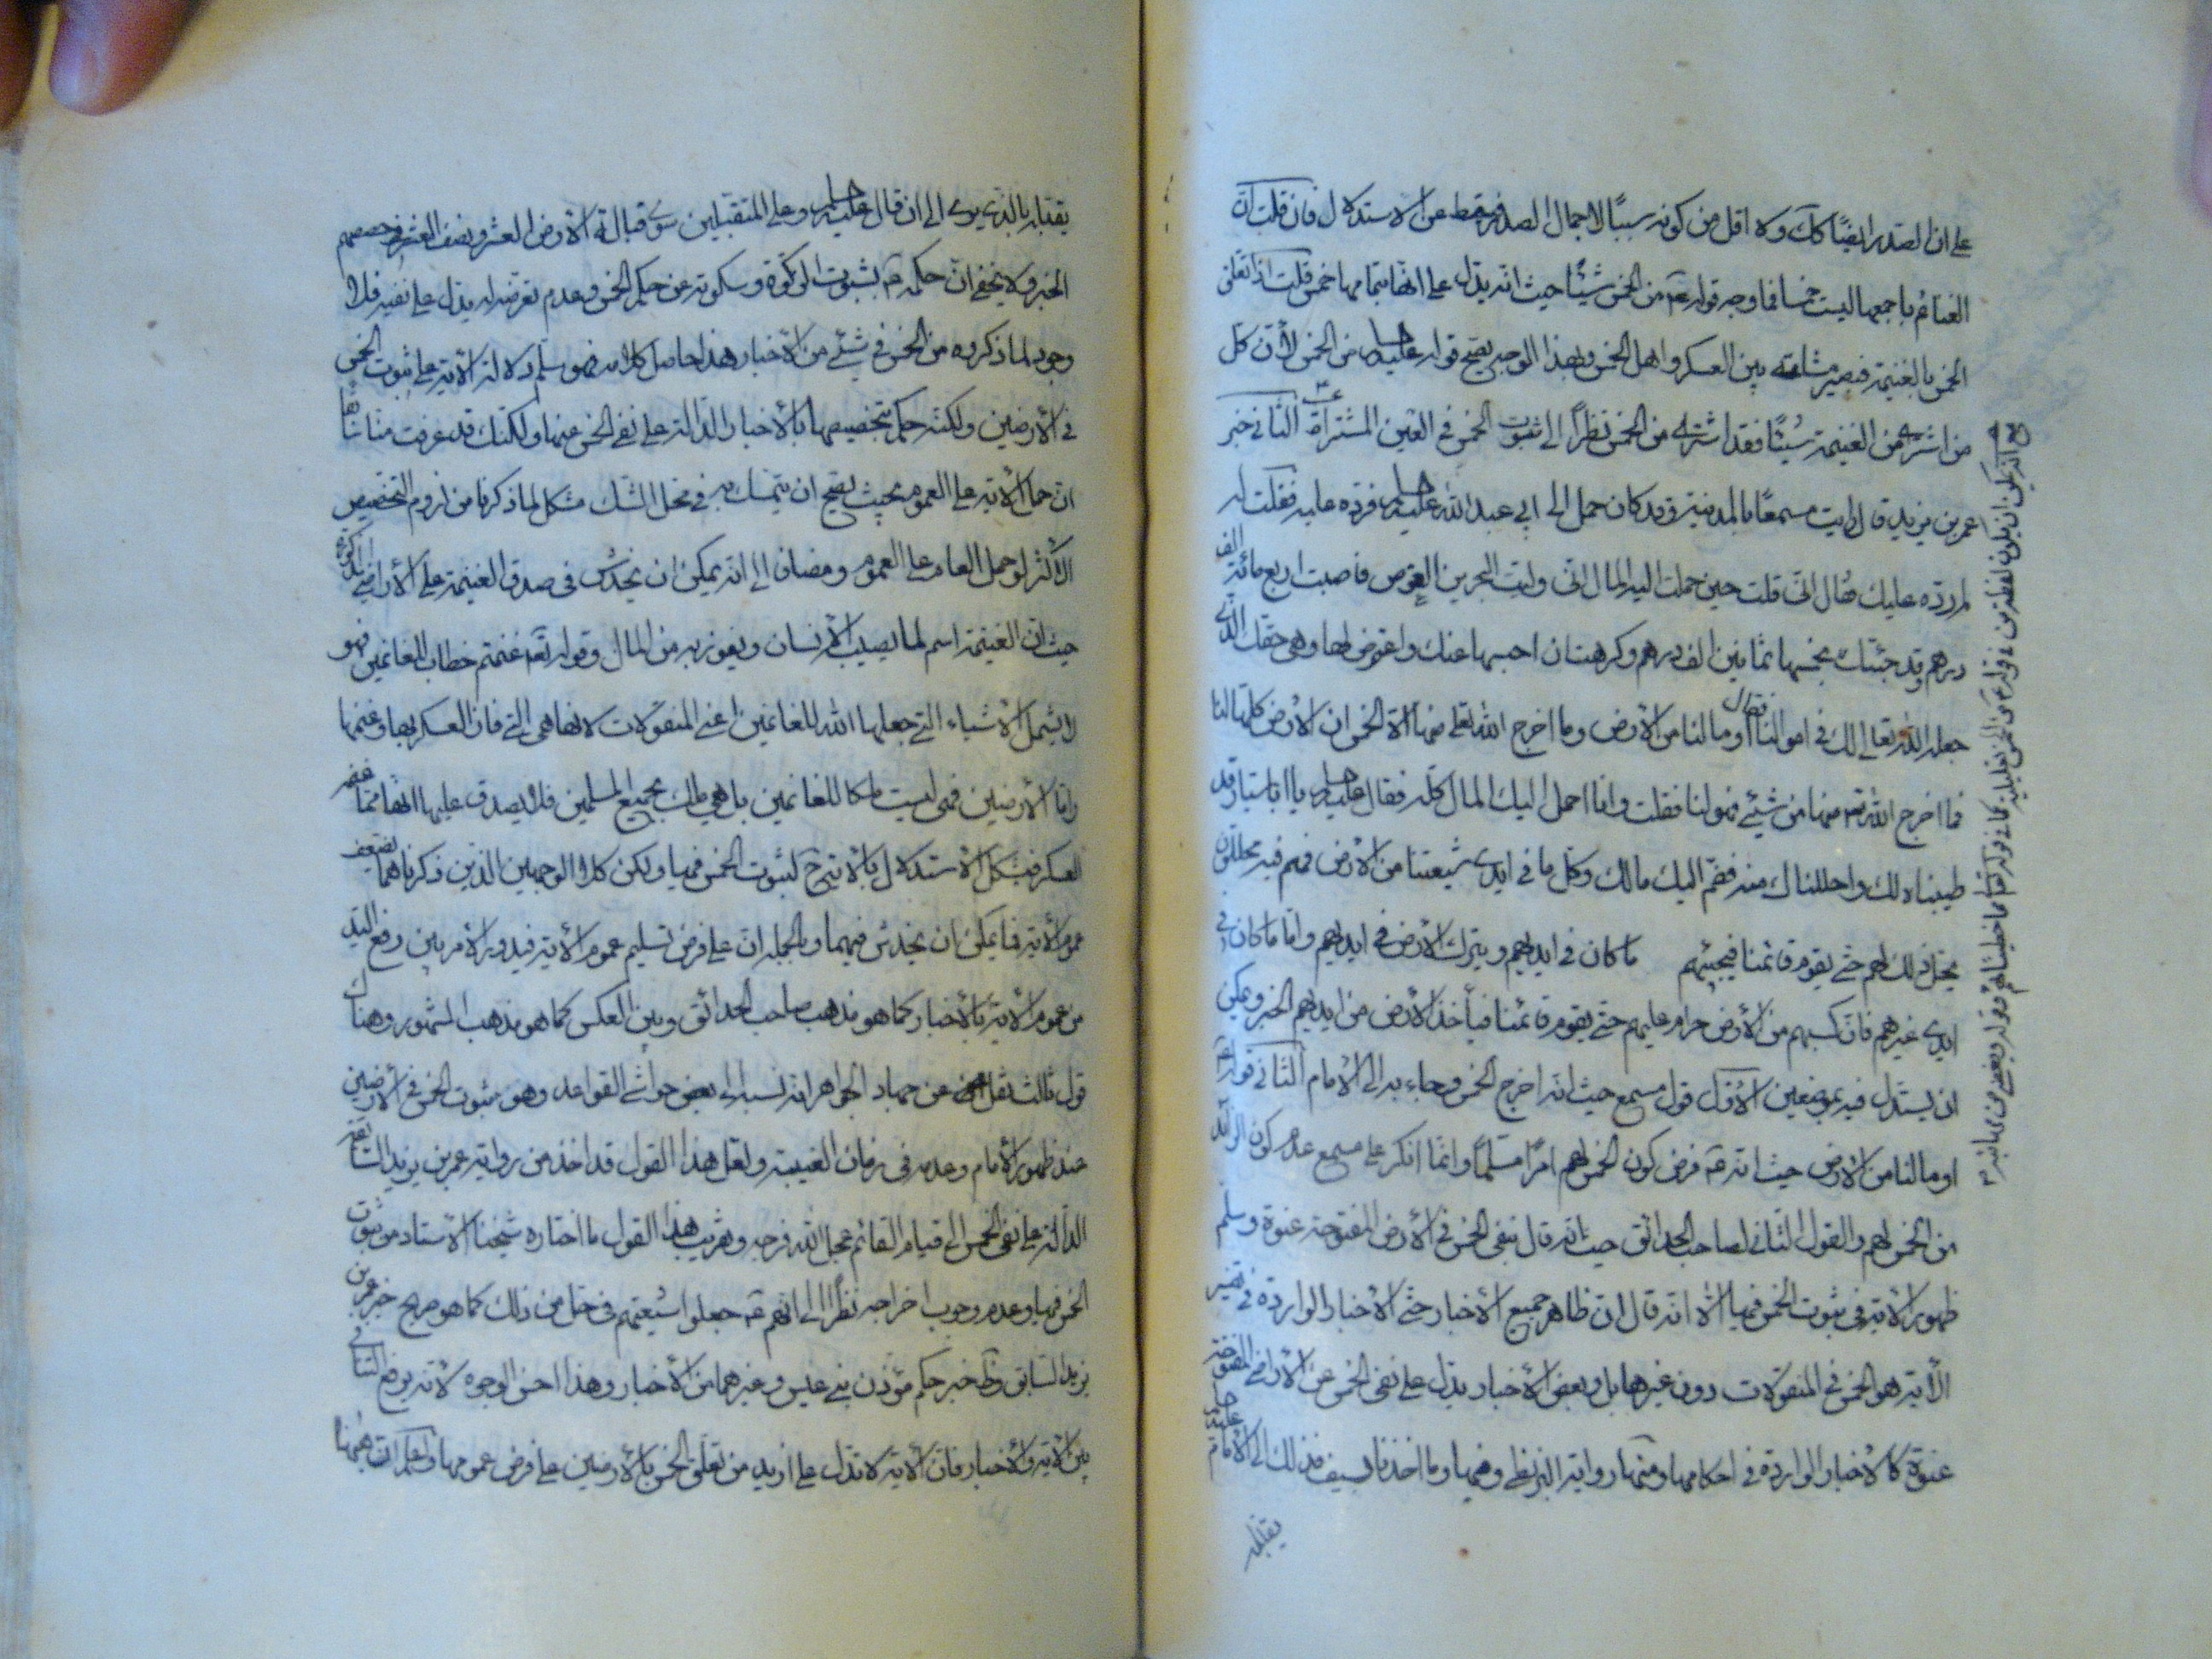 على ان الصدر ايضًا كك ولا اقل من كونه سببًا لاجمال الصدر فيسقط عن الاستدلال فان قلت انّ
الغنائم باجمعها ليست خمسا فما وجه قوله عم من الخمس شيئًا حيث انه يدل على انها بتمامها خمس قلت اذا تعلق
الخمس بالغنيمة فتصير مشتركة بين العسكر واهل الخمس وبهذا الوجه يصح قوله عليه السلام من الخمس لأن كل
من اشترى من الغنيمة شيئًا فقد اشترى من الخمس نظرًا الى ثبوت الخمس في العين المشتراة الثاني خبر
عمر بن يزيد قال رايت مسمعًا بالمدينة وقد كان حمل الى ابي عبد الله عليه السلام فرده عليه فقلت له
لم ردّه عليك فقال انّي قلت حين حملت اليه المال انّي وليت البحرين الغوص فاصبت اربع مائة الف
درهم وقد جئتك بخمسها ثمانين الف درهم وكرهت ان احبسها عنك واعرض لها وهي حقك الذي
جعله الله تعالى لك في اموالنا فقال أو مالنا من الارض وما اخرج الله تعالى منها الا الخمس ان الارض كلها لنا
فما اخرج الله تعم منها من شيئ فهو لنا فقلت وانا احمل اليك المال كله فقال عليه السلام يا ابا سيار قد
طيبناه لك واحللناك منه فضم اليك مالك وكل ما في ايدي شيعتنا من الارض فهم فيه محللون
يحل ذلك لهم حتى يقوم قائمنا فيجبيهم ما كان في ايديهم ويترك الارض في ايديهم واما ما كان في
ايدي غيرهم فان كسبهم من الأرض حرام عليهم حتى يقوم قائمنا فيأخذ الأرض من ايديهم الخبر ويمكن
ان يستدل فيه بموضعين الأوّل قول مسمع حيث انه اخرج الخمس وجاء به الى الإمام الثاني قوله عم
او مالنا من الارض حيث انه عم فرض كون الخمس لهم امرًا مسلمًا وانما انكر على مسمع عدم كون الزائد
من الخمس لهم والقول الثاني لصاحب الحدائق حيث انه قال بنفي الخمس في الأرض المفتوحة عنوة وسلم
ظهور الآية في ثبوت الخمس فيها الا انه قال ان ظاهر جميع الأخبار حتى الأخبار الواردة في تفسير
الآية هو الخمس في المنقولات دون غيرها بل وبعض الأخبار يدل على نفي الخمس عن الأراضي المفتوحة
عنوة كالأخبار الواردة في احكامها ومنها رواية البزنطي وفيها وما اخذ بالسيف فذلك الى الإمام عليه السلام
يقبله
يقبله بالذي يرى الى ان قال عليه السلام وعلى المتقبلين سوى قبالة الأرض العشر ونصف العشر في حصصهم
الخبر ولا يخفى انّ حكمه عم بثبوت الزكوة وسكوته عن حكم الخمس وعدم تعرضه له يدل على نفيه فلا
وجود لما ذكروه من الخمس في شيئ من الأخبار هذا حاصل كلامه فهو سلم دلالة الآية على ثبوت الخمس
في الأرضين ولكنه حكم بتخصيصها بالأخبار الدالة على نفي الخمس عنها ولكنك قد عرفت منا سابقا
ان حمل الآية على العموم بحيث يصح ان يتمسك به في محل الشك مشكل لما ذكرنا من لزوم التخصيص
الأكثر لو حمل العام على العموم ومضافا الى انه يمكن ان يخدش في صدق الغنيمة على الأراضي المذكورة
حيث انّ الغنيمة اسم لما يصيب الإنسان ويفوز به من المال وقوله تعم غنمتم خطاب للغانمين فهو
لا يشمل الأشياء التي جعلها الله للغانمين اعني المنقولات لانها هي التي فاز العسكر بها وغنمها
وامّا الأرضين فهي ليست ملكا للغانمين بل هي ملك لجميع المسلمين فلا يصدق عليها انها مما غنمه
العسكر فيشكل الاستدلال بالآية ح لثبوت الخمس فيها ولكن كلا الوجهين الذين ذكرناهما لتضعيف
عموم الآية مما يمكن ان يخدش فيهما وبالجملة انّ على فرض تسليم عموم الآية فيدور الأمر بين رفع اليد
من عموم الآية بالأخبار كما هو مذهب صاحب الحدائق وبين العكس كما هو مذهب المشهور وهناك
قول ثالث نقل عن الجواهر انه نسبه الى بعض حواشي القواعد وهو ثبوت الخمس في الأرضين
عند ظهور الأمام وعدمه في زمان الغيبة ولعل هذا القول قد اخذ من رواية عمر بن يزيد السابقة
الدالة على نفي الخمس الى قيام القائم عجل الله فرجه وبقريب هذا القول ما اختاره شيخنا الأستاد من ثبوت
الخمس فيها وعدم وجوب اخراجه نظرًا الى انهم عم جعلوا شيعتهم في حل من ذلك كما هو صريح خبر عمر بن
يزيد السابق وظ خبر حكيم مؤذن بني عبس وغيرهما من الأخبار وهذا احسن الوجوه لأنه يرفع التنافي
بين الآية والأخبار فانّ الآية لا تدل على ازيد من تعلق الخمس بالأرضين على فرض عمومها واعلم انّ هيهنا